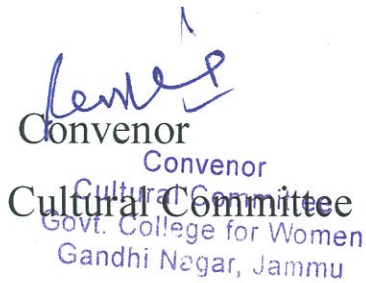 Convenor
Convenor
Cultural Committee
Cultural Committee
Govt. College for Women
Gandhi Nagar, Jammu